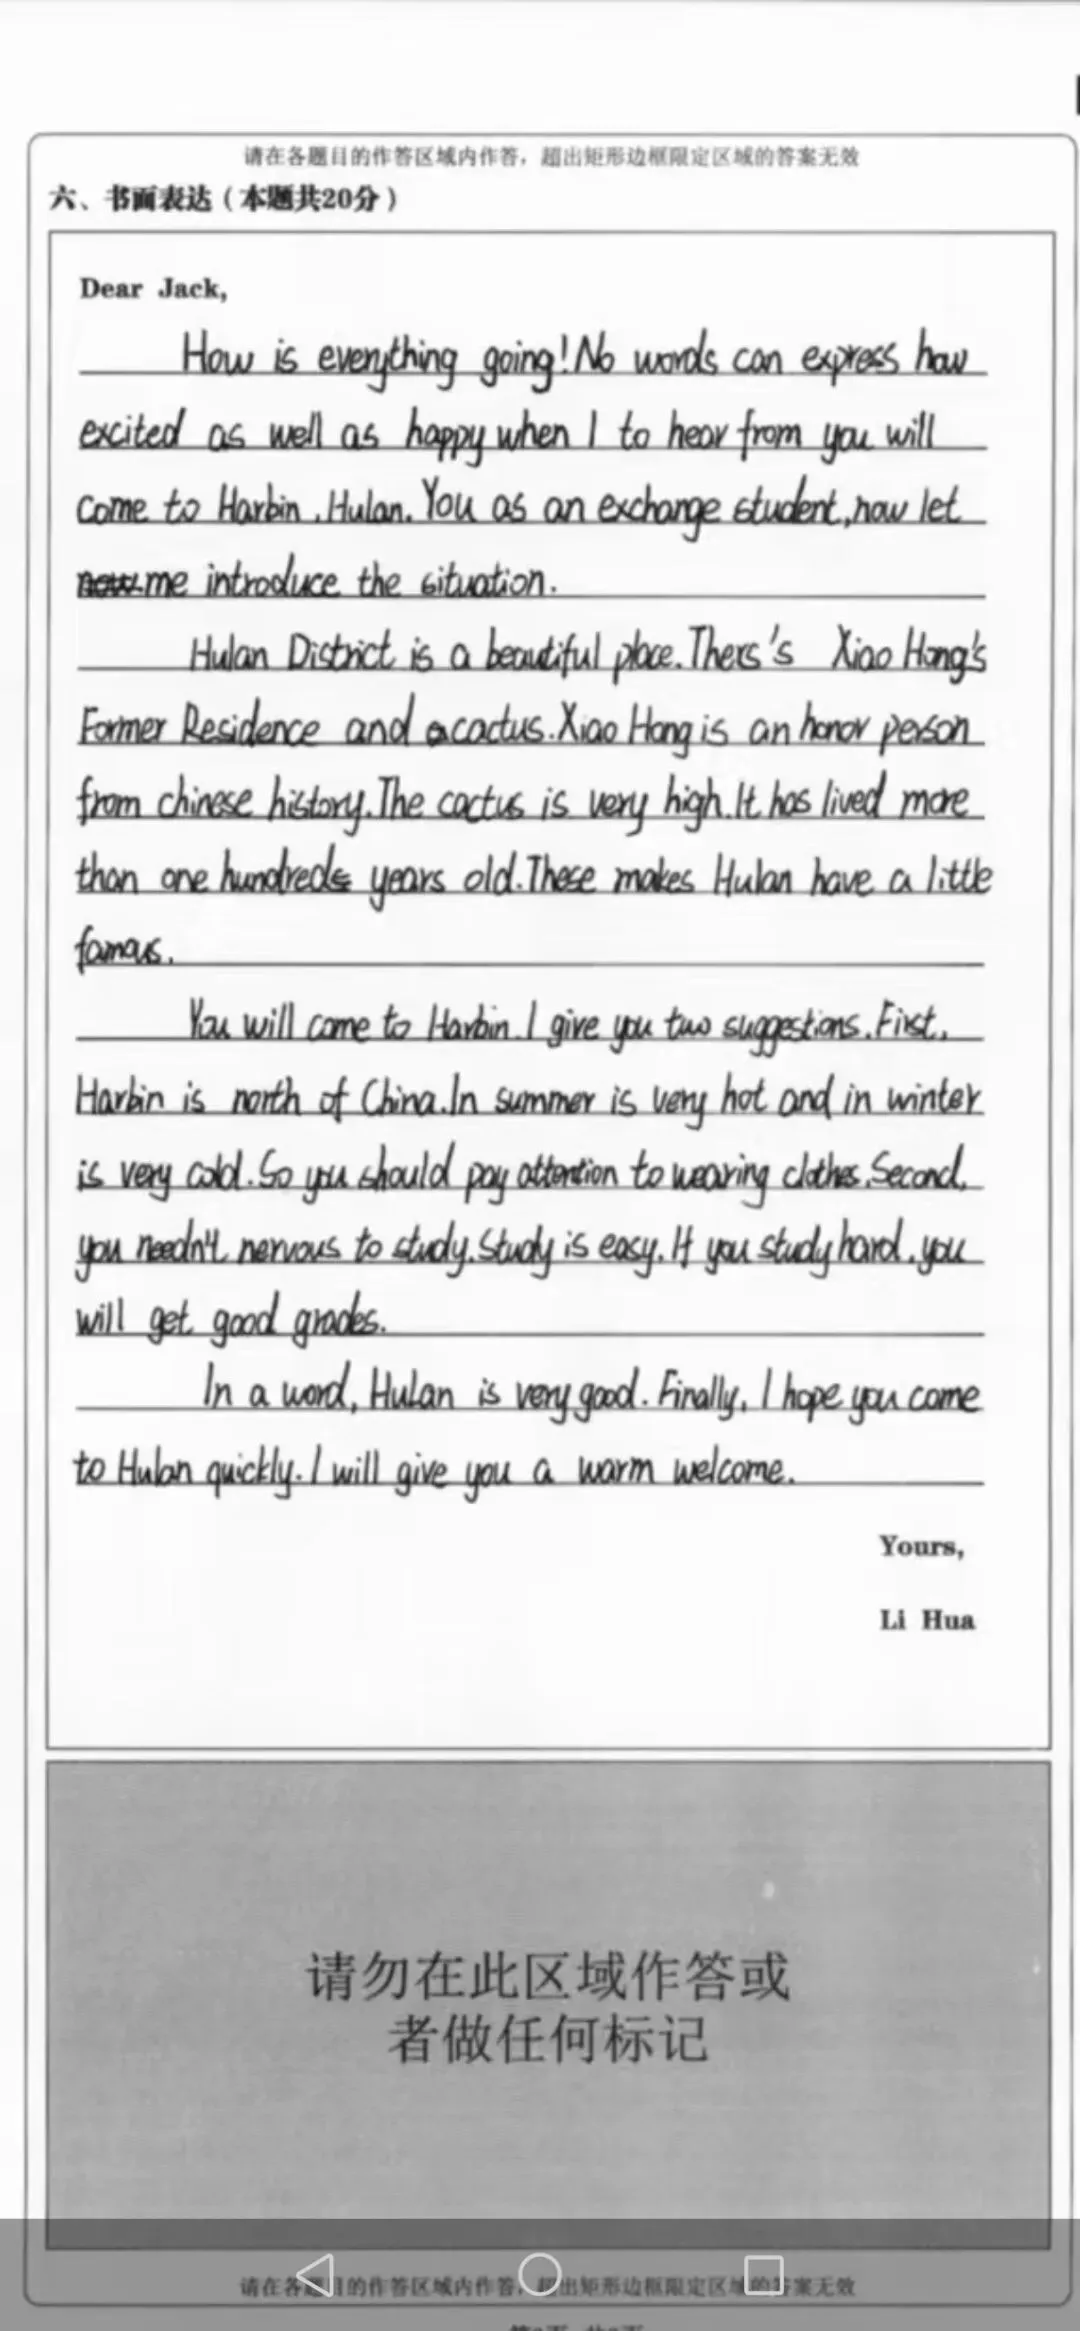 请在各题目的作答区域内作答，超出矩形边框限定区域的答案无效
六、书面表达（本题共20分）
Dear Jack,
How is everything going! No words can express how
excited as well as happy when I to hear from you will
come to Harbin, Hulan. You as an exchange student, now let
me introduce the situation.
Hulan District is a beautiful place. Thers's Xiao Hong's
Former Residence and a cactus. Xiao Hong is an honor person
from chinese history. The cactus is very high. It has lived more
than one hundreds years old. These makes Hulan have a little
famous.
You will come to Harbin. I give you two suggestions. First,
Harbin is north of China. In summer is very hot and in winter
is very cold. So you should pay attention to wearing clothes. Second,
you needn't nervous to study. Study is easy. If you study hard, you
will get good grades.
In a word, Hulan is very good. Finally, I hope you come
to Hulan quickly. I will give you a warm welcome.
Yours,
Li Hua
请勿在此区域作答或
者做任何标记
请在各题目的作答区域内作答，超出矩形边框限定区域的答案无效